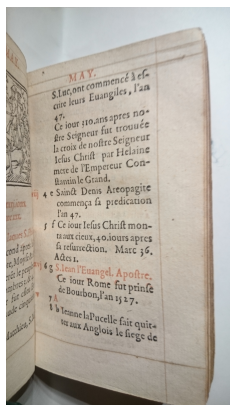 MAY.
S. Luc, ont commencé à es-
crire leurs Euangiles, l'an
47.
Ce iour 310. ans apres no-
stre Seigneur fut trouuée
la croix de nostre Seigneur
Iesus Christ par Helaine
mere de l'Empereur Con-
stantin le Grand.
4 e Sainct Denis Areopagite
commença sa predication
l'an 47.
5 f Ce iour Iesus Christ mon-
ta aux cieux, 40. iours apres
sa resurrection. Marc 36.
Actes 1.
6 g S. Iean l'Euangel. Apostre.
Ce iour Rome fut prinse
de Bourbon, l'an 1527.
7 A
8 b Ieanne la Pucelle fait quit-
ter aux Anglois le siege de